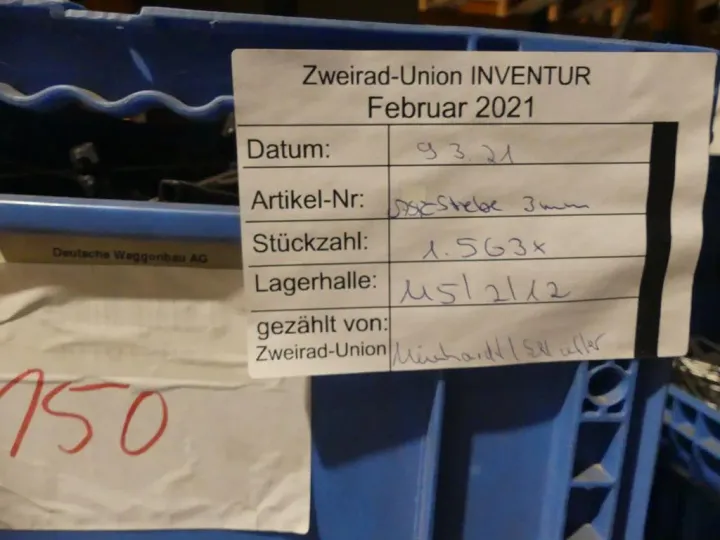 Zweirad-Union INVENTUR
Februar 2021
Datum: 9 3.21
Artikel-Nr: Strebe 3mm
Stückzahl: 1.563x
Lagerhalle: M5/2/12
gezählt von:
Zweirad-Union Meinhardt/
Deutsche Waggonbau AG
150